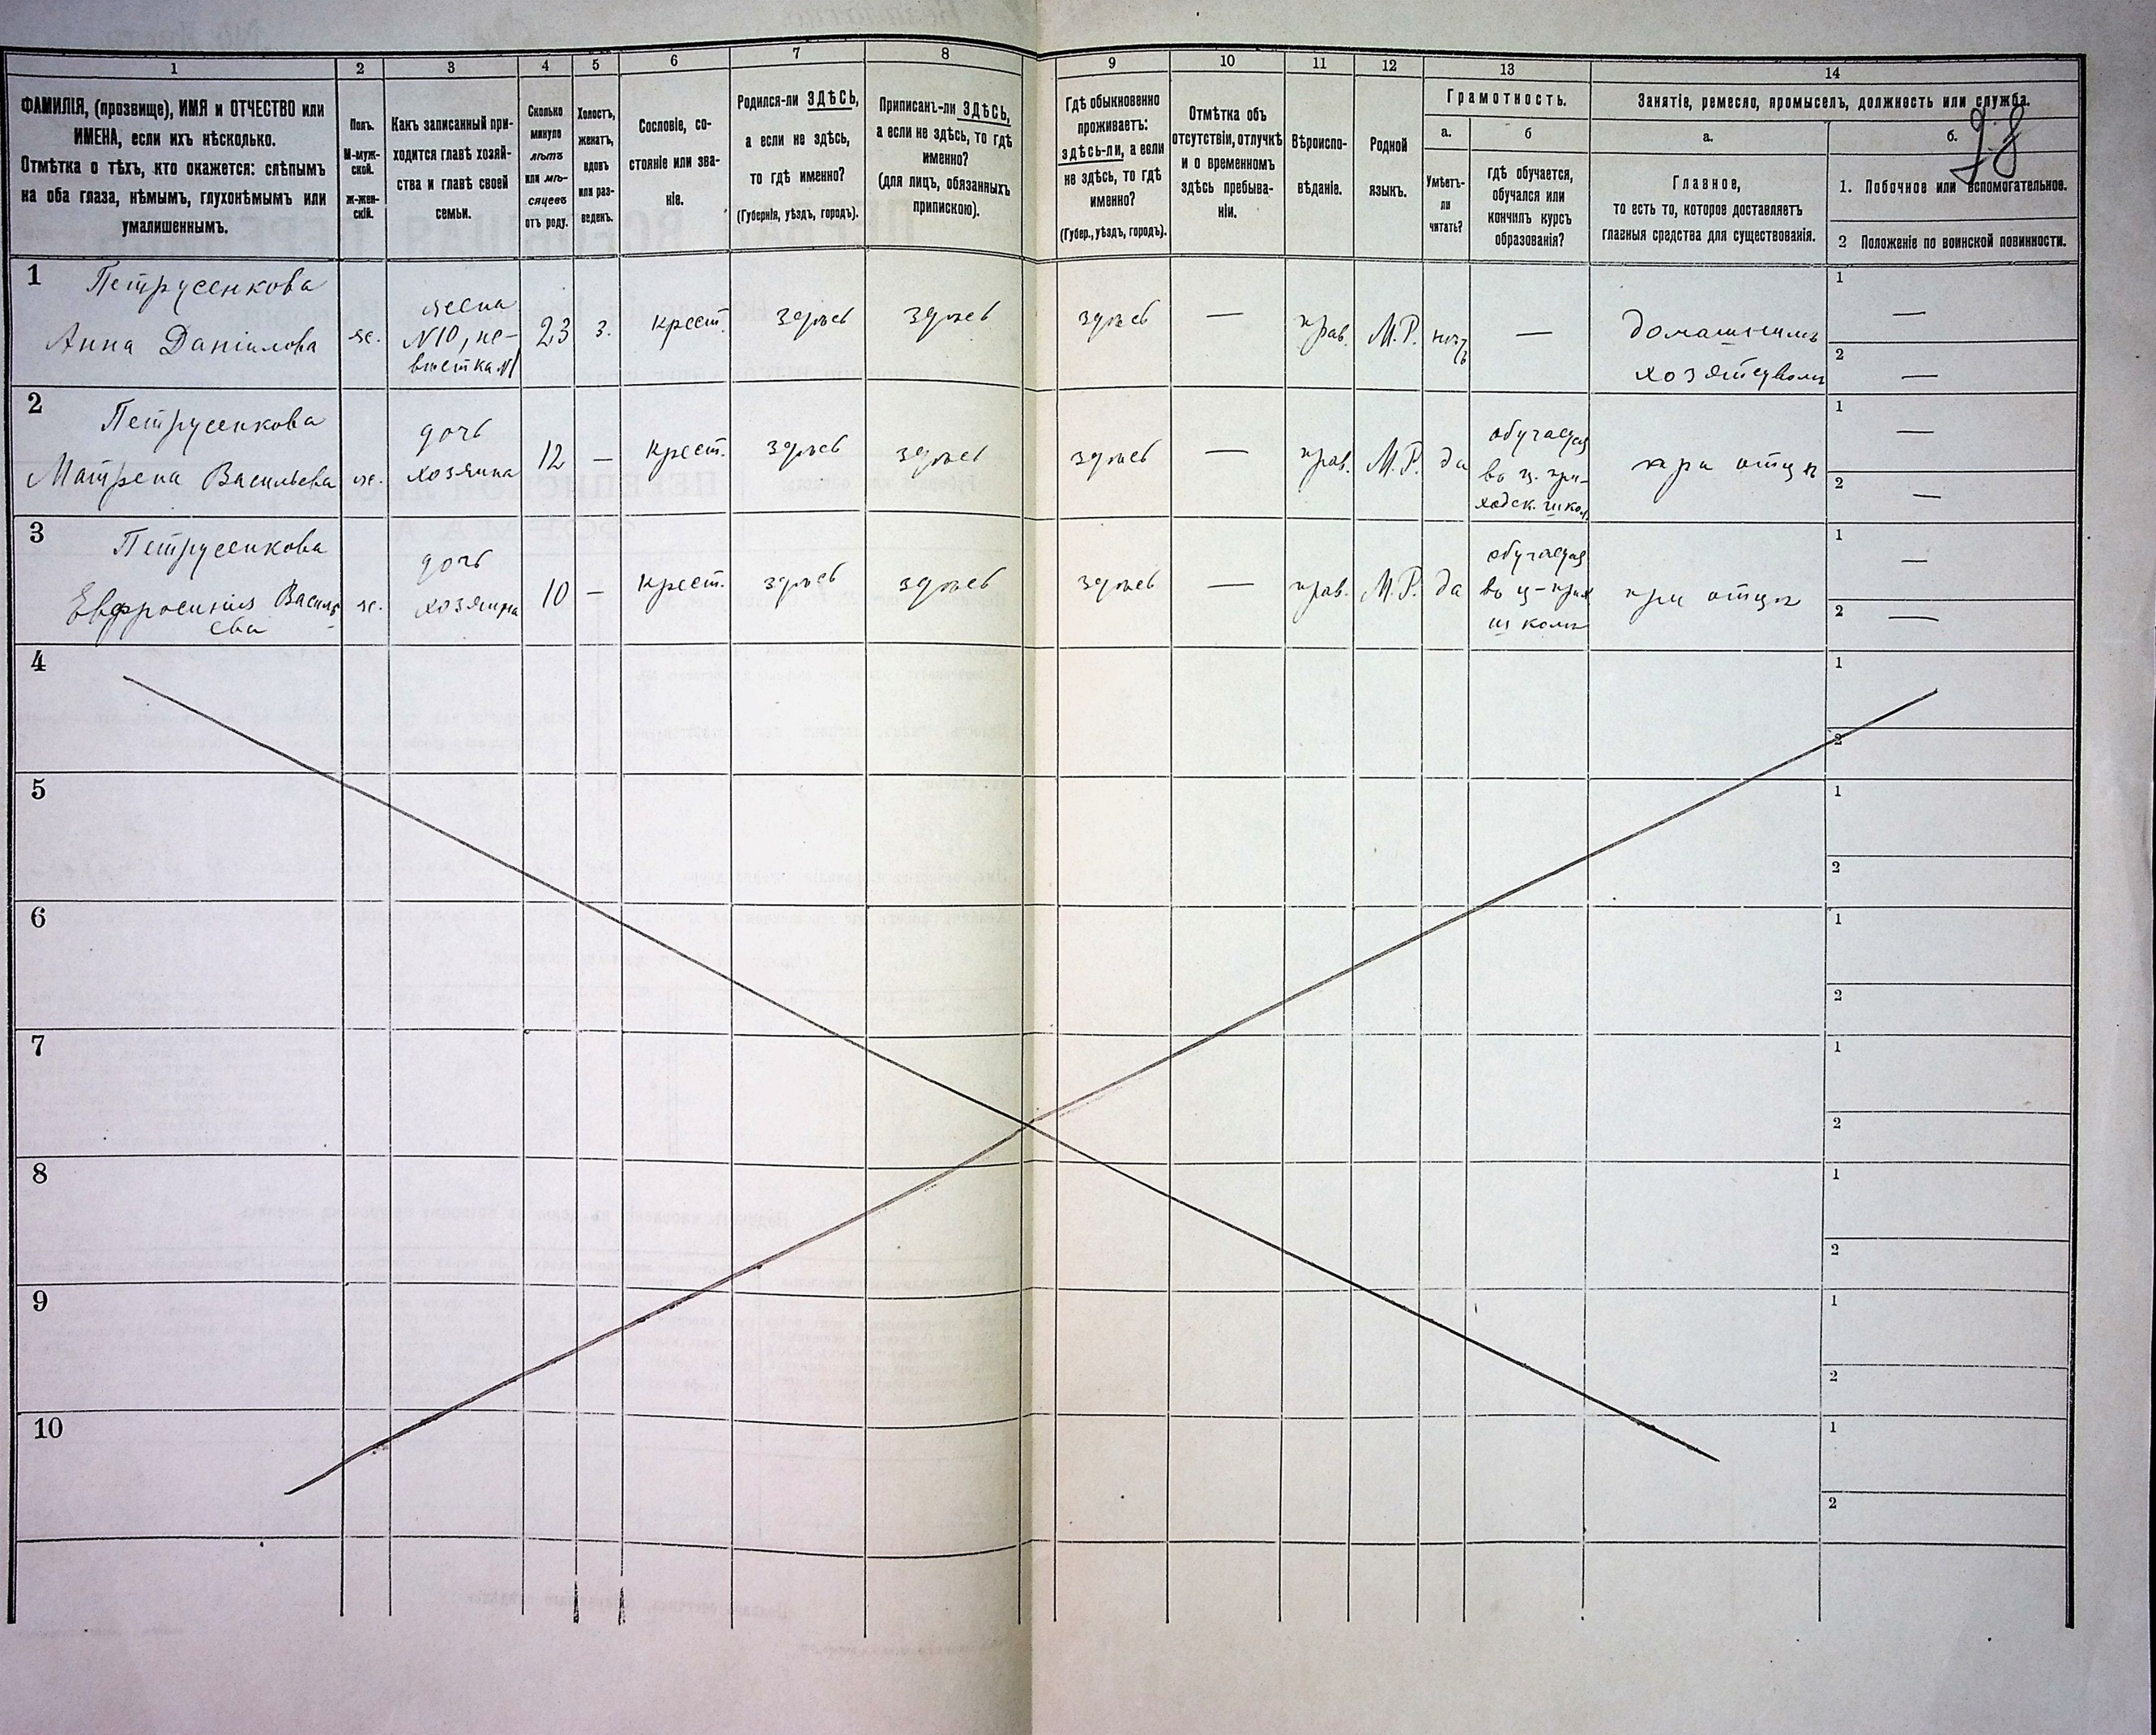 98
1
2
3
4
5
6
7
8
9
10
11
12
13
14
ФАМИЛІЯ, (прозвище), ИМЯ и ОТЧЕСТВО или
ИМЕНА, если ихъ нѣсколько.
Отмѣтка о тѣхъ, кто окажется: слѣпымъ
на оба глаза, нѣмымъ, глухонѣмымъ или
умалишеннымъ.
Полъ.
М-муж-
ской.
ж-жен-
скій.
Какъ записанный при-
ходится главѣ хозяй-
ства и главѣ своей
семьи.
Сколько
минуло
лѣтъ
или мѣ-
сяцевъ
отъ роду.
Холостъ,
женатъ,
вдовъ
или раз-
веденъ.
Сословіе, со-
стояніе или зва-
ніе.
Родился-ли ЗДѢСЬ,
а если не здѣсь,
то гдѣ именно?
(Губернія, уѣздъ, городъ).
Приписанъ-ли ЗДѢСЬ,
а если не здѣсь, то гдѣ
именно?
(для лицъ, обязанныхъ
припискою).
Гдѣ обыкновенно
проживаетъ:
здѣсь-ли, а если
не здѣсь, то гдѣ
именно?
(Губер., уѣздъ, городъ).
Отмѣтка объ
отсутствіи, отлучкѣ
и о временномъ
здѣсь пребыва-
ніи.
Вѣроиспо-
вѣданіе.
Родной
языкъ.
Грамотность.
а.
Умѣетъ-
ли
читать?
б
гдѣ обучается,
обучался или
кончилъ курсъ
образованія?
Занятіе, ремесло, промыселъ, должность или служба.
а.
Главное,
то есть то, которое доставляетъ
главныя средства для существованія.
б.
1. Побочное или вспомогательное.
2 Положеніе по воинской повинности.
1
Петрусенкова
Анна Даніилова
же.
жена
№10, не-
вѣстка №1
23
з.
крест.
здѣсь
здѣсь
здѣсь
—
прав.
М.Р.
нѣтъ
—
домашнимъ
хозяйствомъ
1
—
2
—
2
Петрусенкова
Матрена Васильева
же.
дочь
хозяина
12
—
крест.
здѣсь
здѣсь
здѣсь
—
прав.
М.Р.
да
обучается
въ ц. при-
ходск. школ.
при отцѣ
1
—
2
—
3
Петрусенкова
Евфросинія Василь
ева
же.
дочь
хозяина
10
—
крест.
здѣсь
здѣсь
здѣсь
—
прав.
М.Р.
да
обучается
въ ц-прих
школѣ
при отцѣ
1
—
2
—
4
1
2
5
1
2
6
1
2
7
1
2
8
1
2
9
1
2
10
1
2